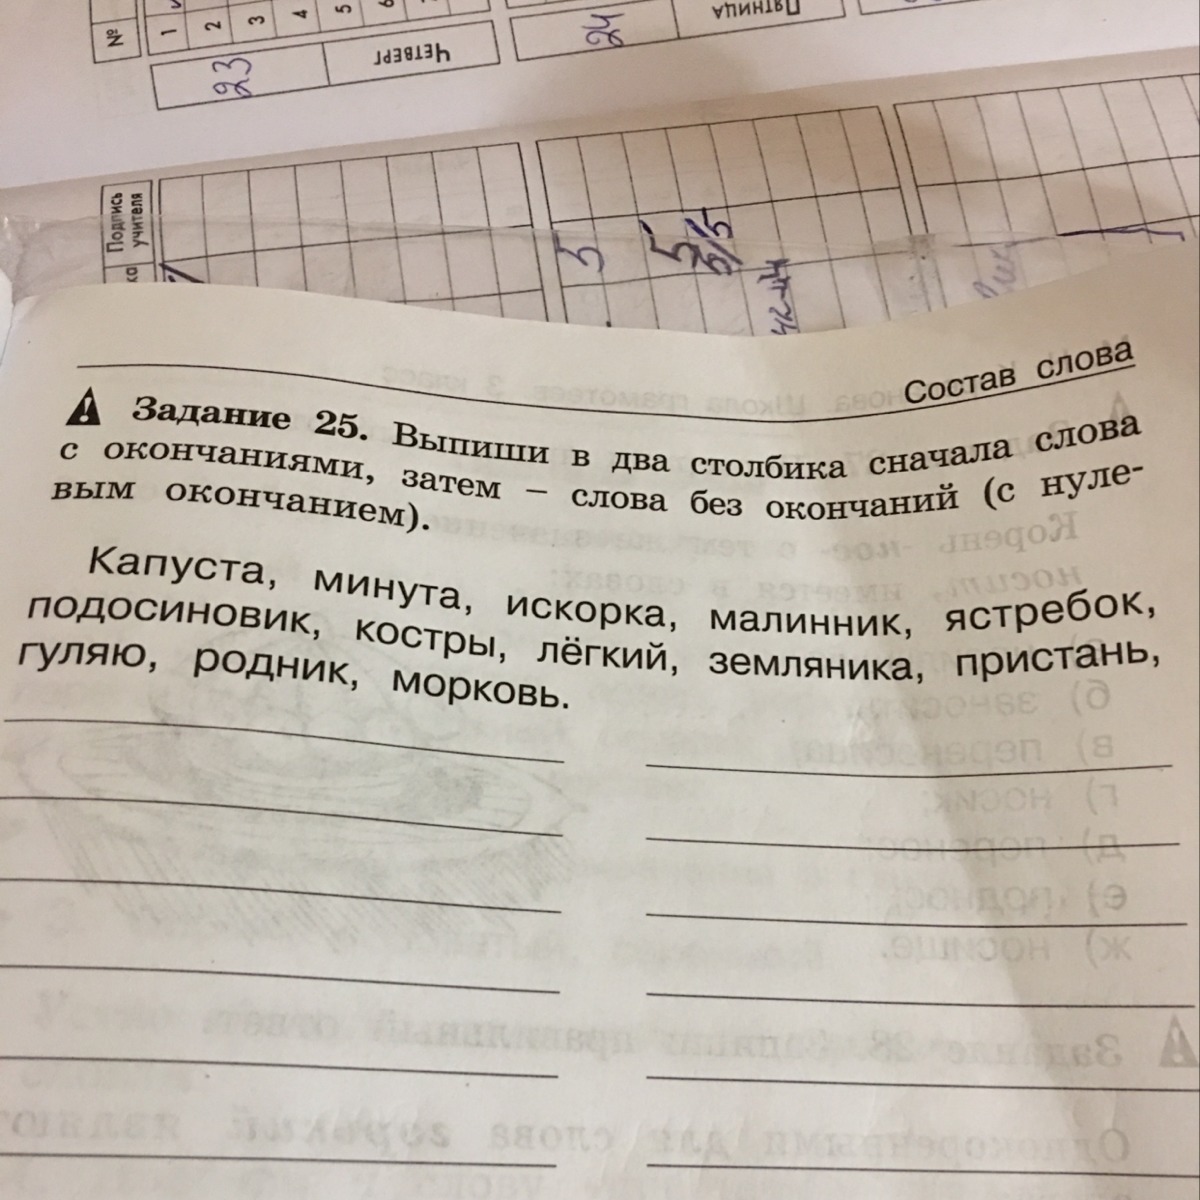 №
1
2
3
4
5
6
7
23
ЧЕТВЕРГ
24
ПЯТНИЦА
Подпись
учителя
5
5
5/5
Состав слова
Задание 25. Выпиши в два столбика сначала слова
с окончаниями, затем – слова без окончаний (с нуле-
вым окончанием).
Капуста, минута, искорка, малинник, ястребок,
подосиновик, костры, лёгкий, земляника, пристань,
гуляю, родник, морковь.